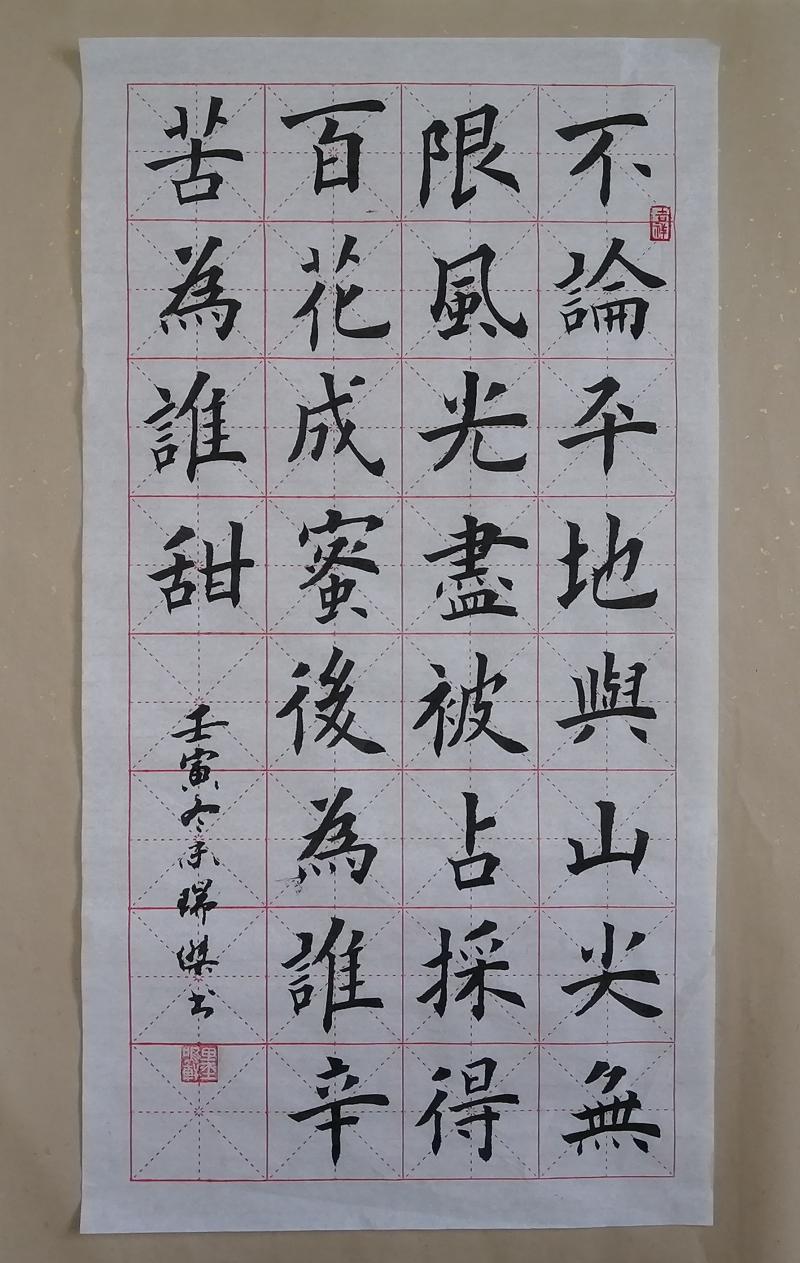 不論平地與山尖無
吉祥
限風光盡被占採得
百花成蜜後為誰辛
苦為誰甜
壬寅冬宋瑞傑书